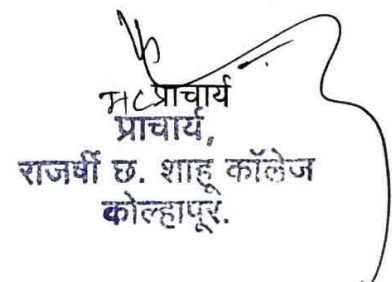 प्राचार्य
प्राचार्य,
राजर्षी छ. शाहू कॉलेज
कोल्हापूर.